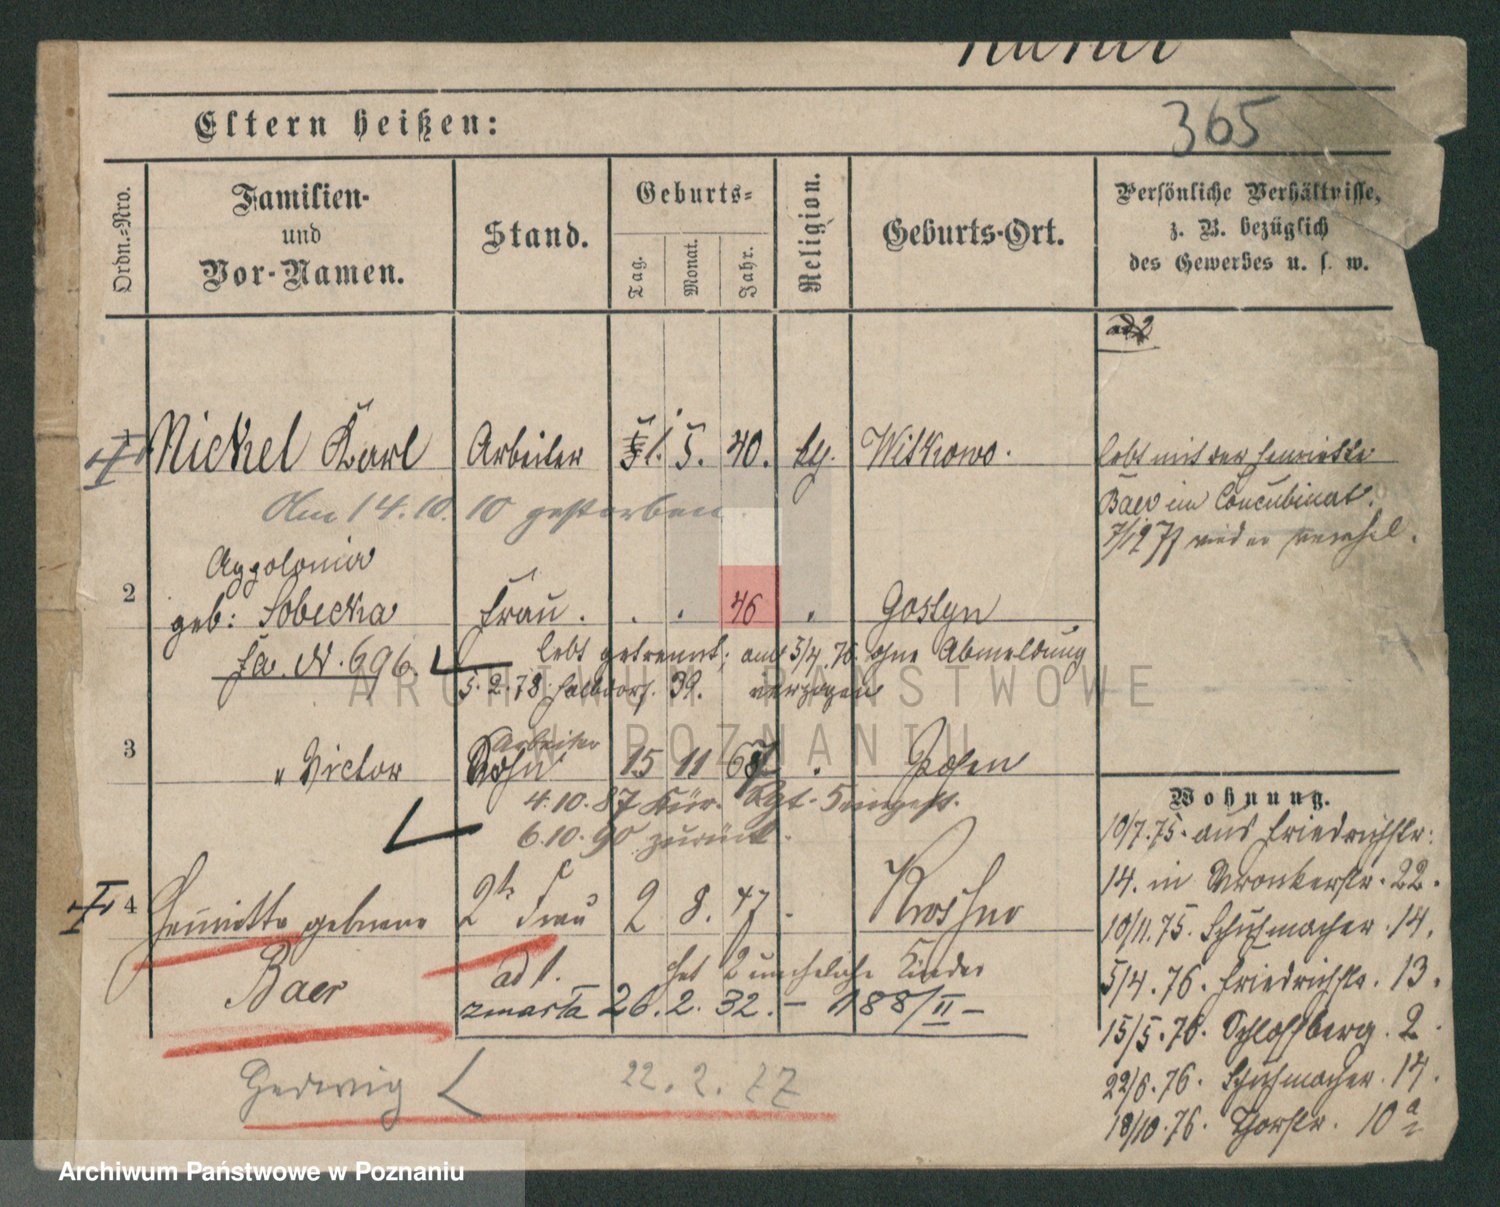 365
Eltern heißen:
Ordn.-Nro.
Familien-
und
Vor-Namen.
Stand.
Geburts-
Tag.
Monat.
Jahr.
Religion.
Geburts-Ort.
Persönliche Verhältnisse,
z. B. bezüglich
des Gewerbes u. s. w.
ad 2
1 Nickel Karl Arbeiter 1. 5. 40. Witkowo.
Am 14.10.10 gestorben
lebt mit der Henriette
Baer im Concubinat.
Appolonia
2 geb: Sobecka Frau . . . 46 " Gostyn
fa. N. 696.
lebt getrennt; am 5/4. 76. ohne Abmeldung
5.2.78 39. verzogen
Arbeiter
3 " Victor Sohn 15 11 67 . Posen
4.10.87 Kür. Rgt. 5 eingest.
6.10.90 zurück.
4 Henriette geborene 2te Frau 2 8. 47 -
Baer
ad 1. hat 2 uneheliche Kinder
zmarła 26. 2. 32. - 188/II -
Hedwig 22. 2. 77
Wohnung.
10/7.75. aus Friedrichstr.
14. in Wronkerstr. 22.
10/11.75. Schuhmacher. 14.
5/4.76. Friedrichstr. 13.
15/5.76. Schlossberg. 2.
22/6.76. Schuhmacher. 14.
18/10.76. Thorstr. 10 a
ARCHIWUM PAŃSTWOWE
W POZNANIU
Archiwum Państwowe w Poznaniu